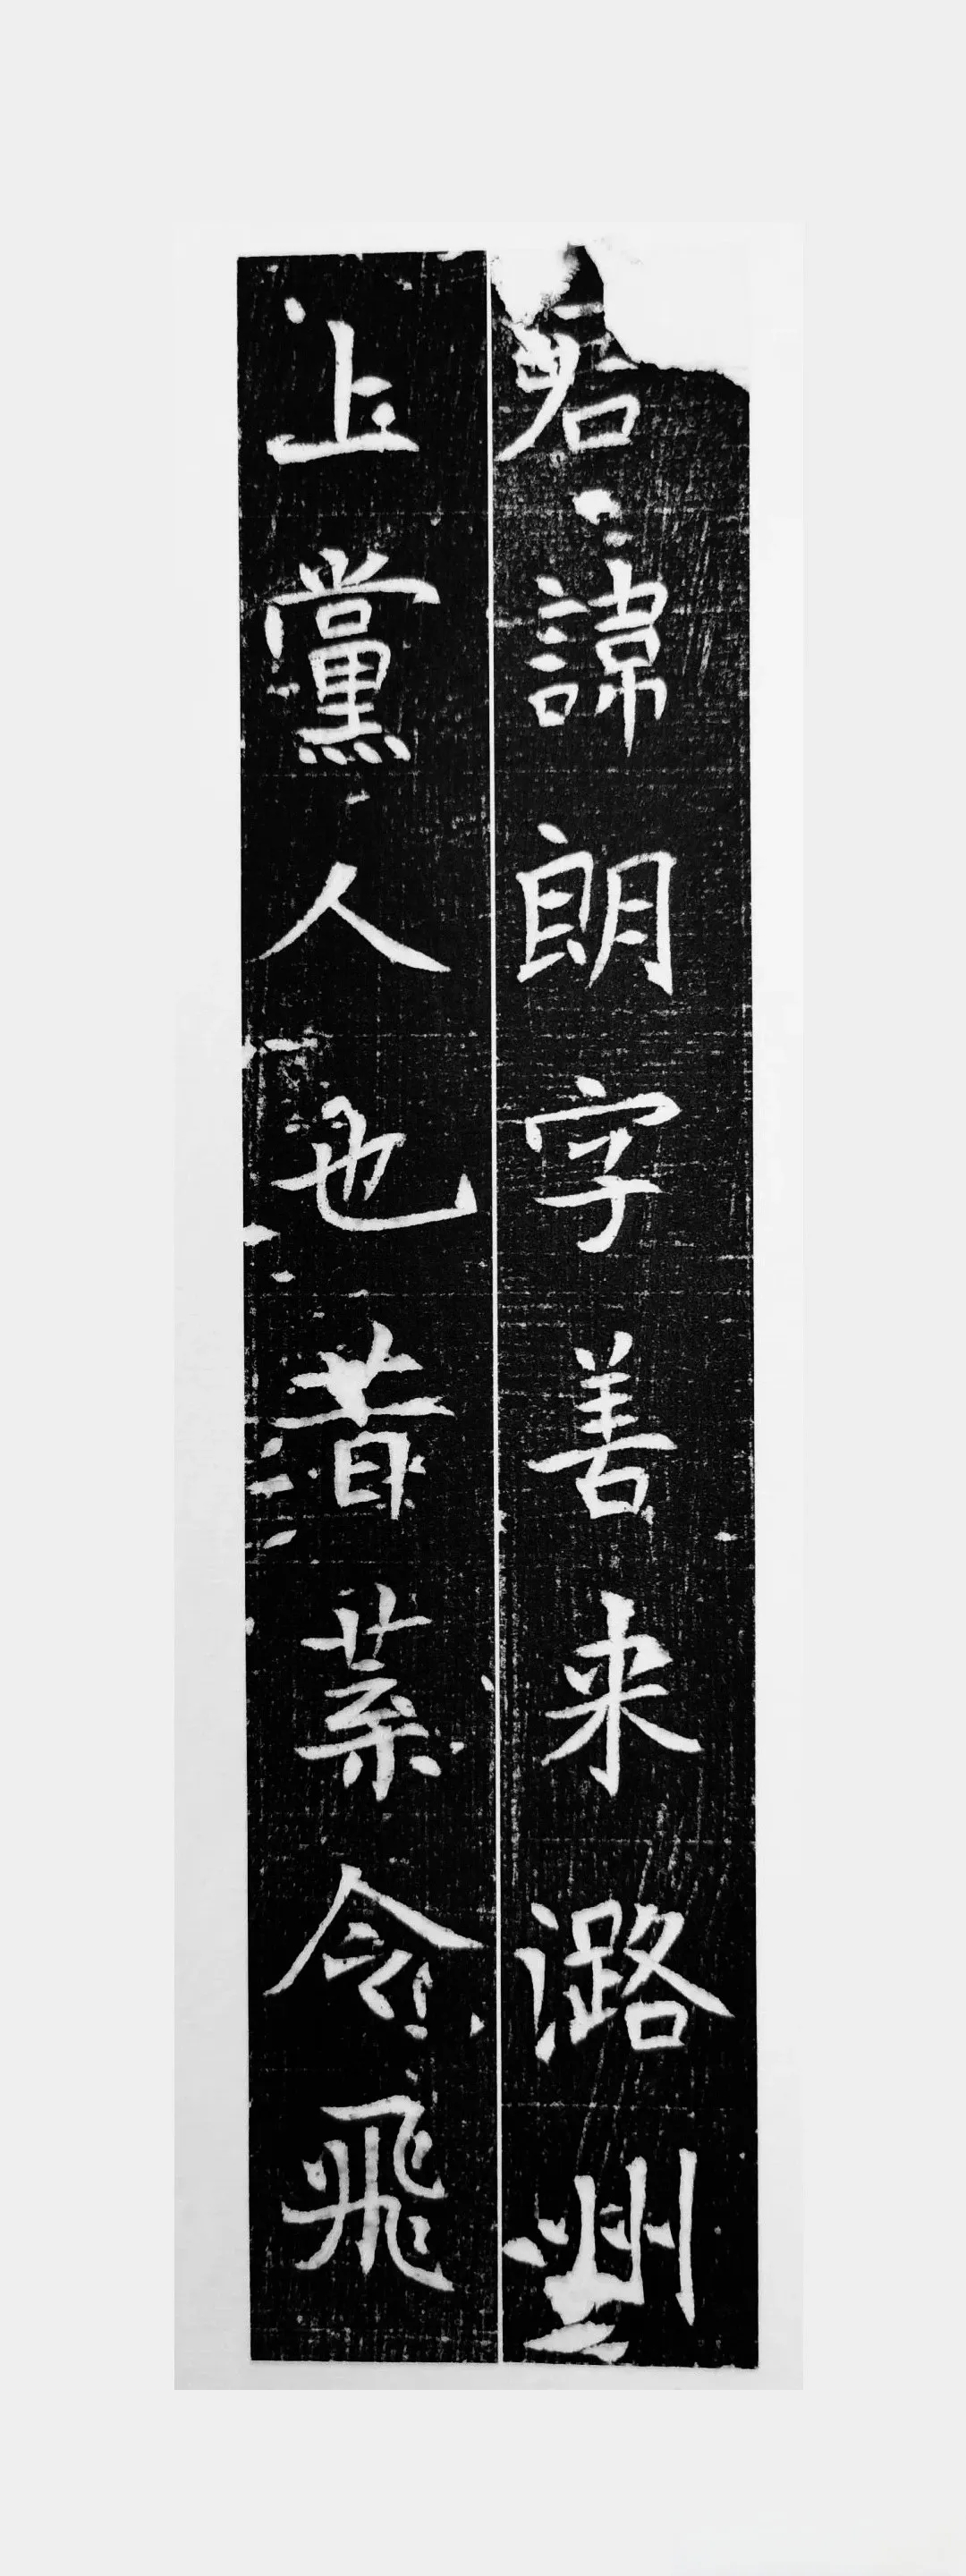 君諱朗字善来潞州
上黨人也昔葉令飛